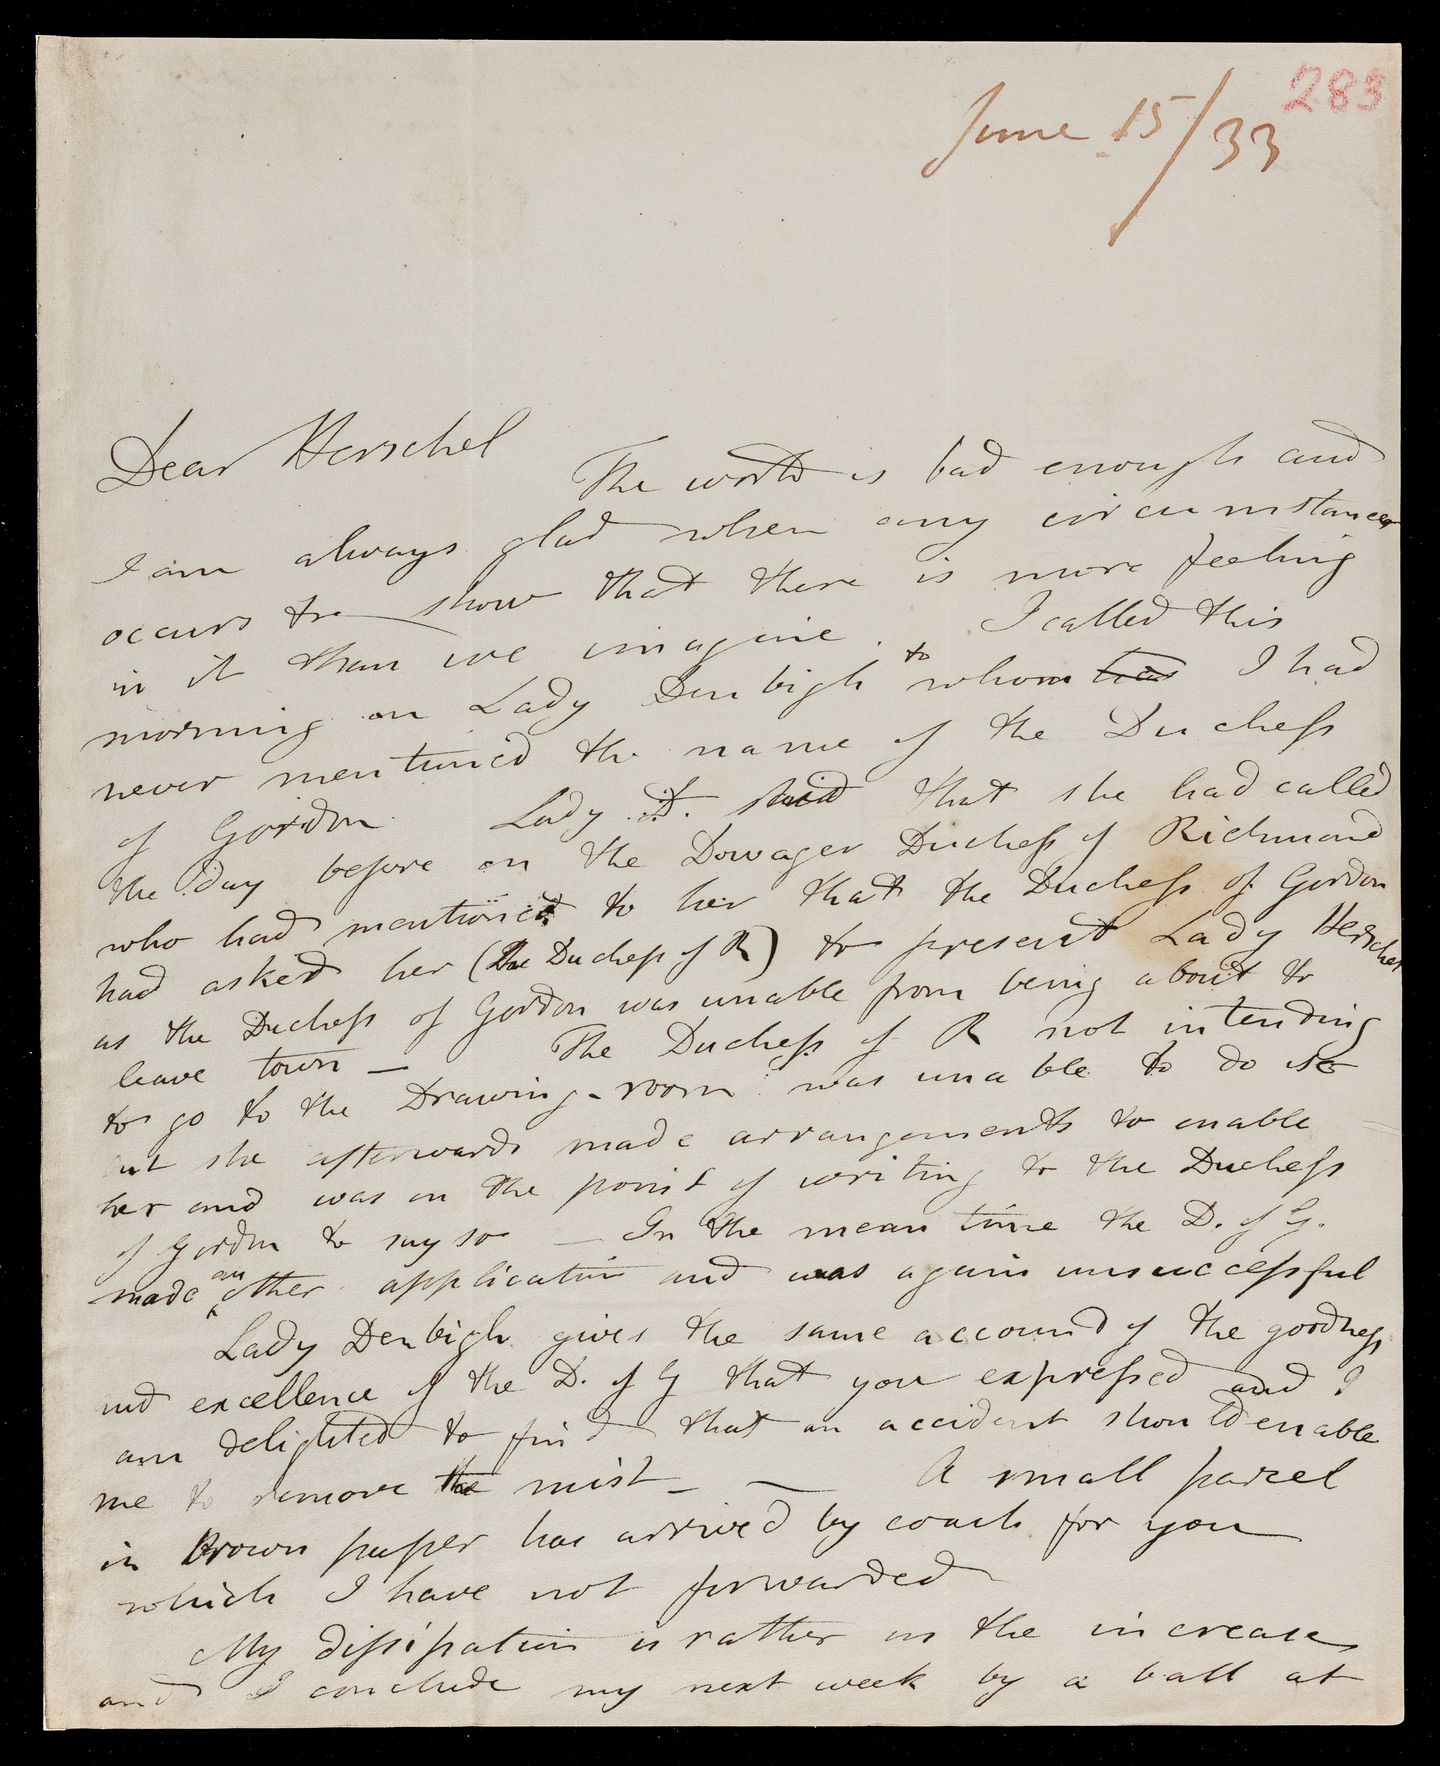 283
June 15/33
Dear Herschel
The world is bad enough and
I am always glad when any circumstances
occurs to show that there is more feeling
in it than we imagine. I called this
morning on Lady Denbigh to whom has I had
never mentioned the name of the Duchess
of Gordon Lady D. said that she had called
the day before on the Dowager Duchess of Richmond
who had mentioned to her that the Duchess of Gordon
had asked her (the Duchess of R) to present Lady Herschel
as the Duchess of Gordon was unable from being about to
leave town — The Duchess of R not intending
to go to the Drawing-room was unable to do so
but she afterwards made arrangements to enable
her and was on the point of writing to the Duchess
of Gordon to say so — In the mean time the D. of G.
made another application and was again unsuccessful
Lady Denbigh gives the same account of the goodness
and excellence of the D. of G that you expressed and I
am delighted to find that an accident should enable
me to remove the mist — — A small parcel
in Brown paper has arrived by coach for you
which I have not forwarded
My dissipation is rather on the increase
and I conclude my next week by a ball at